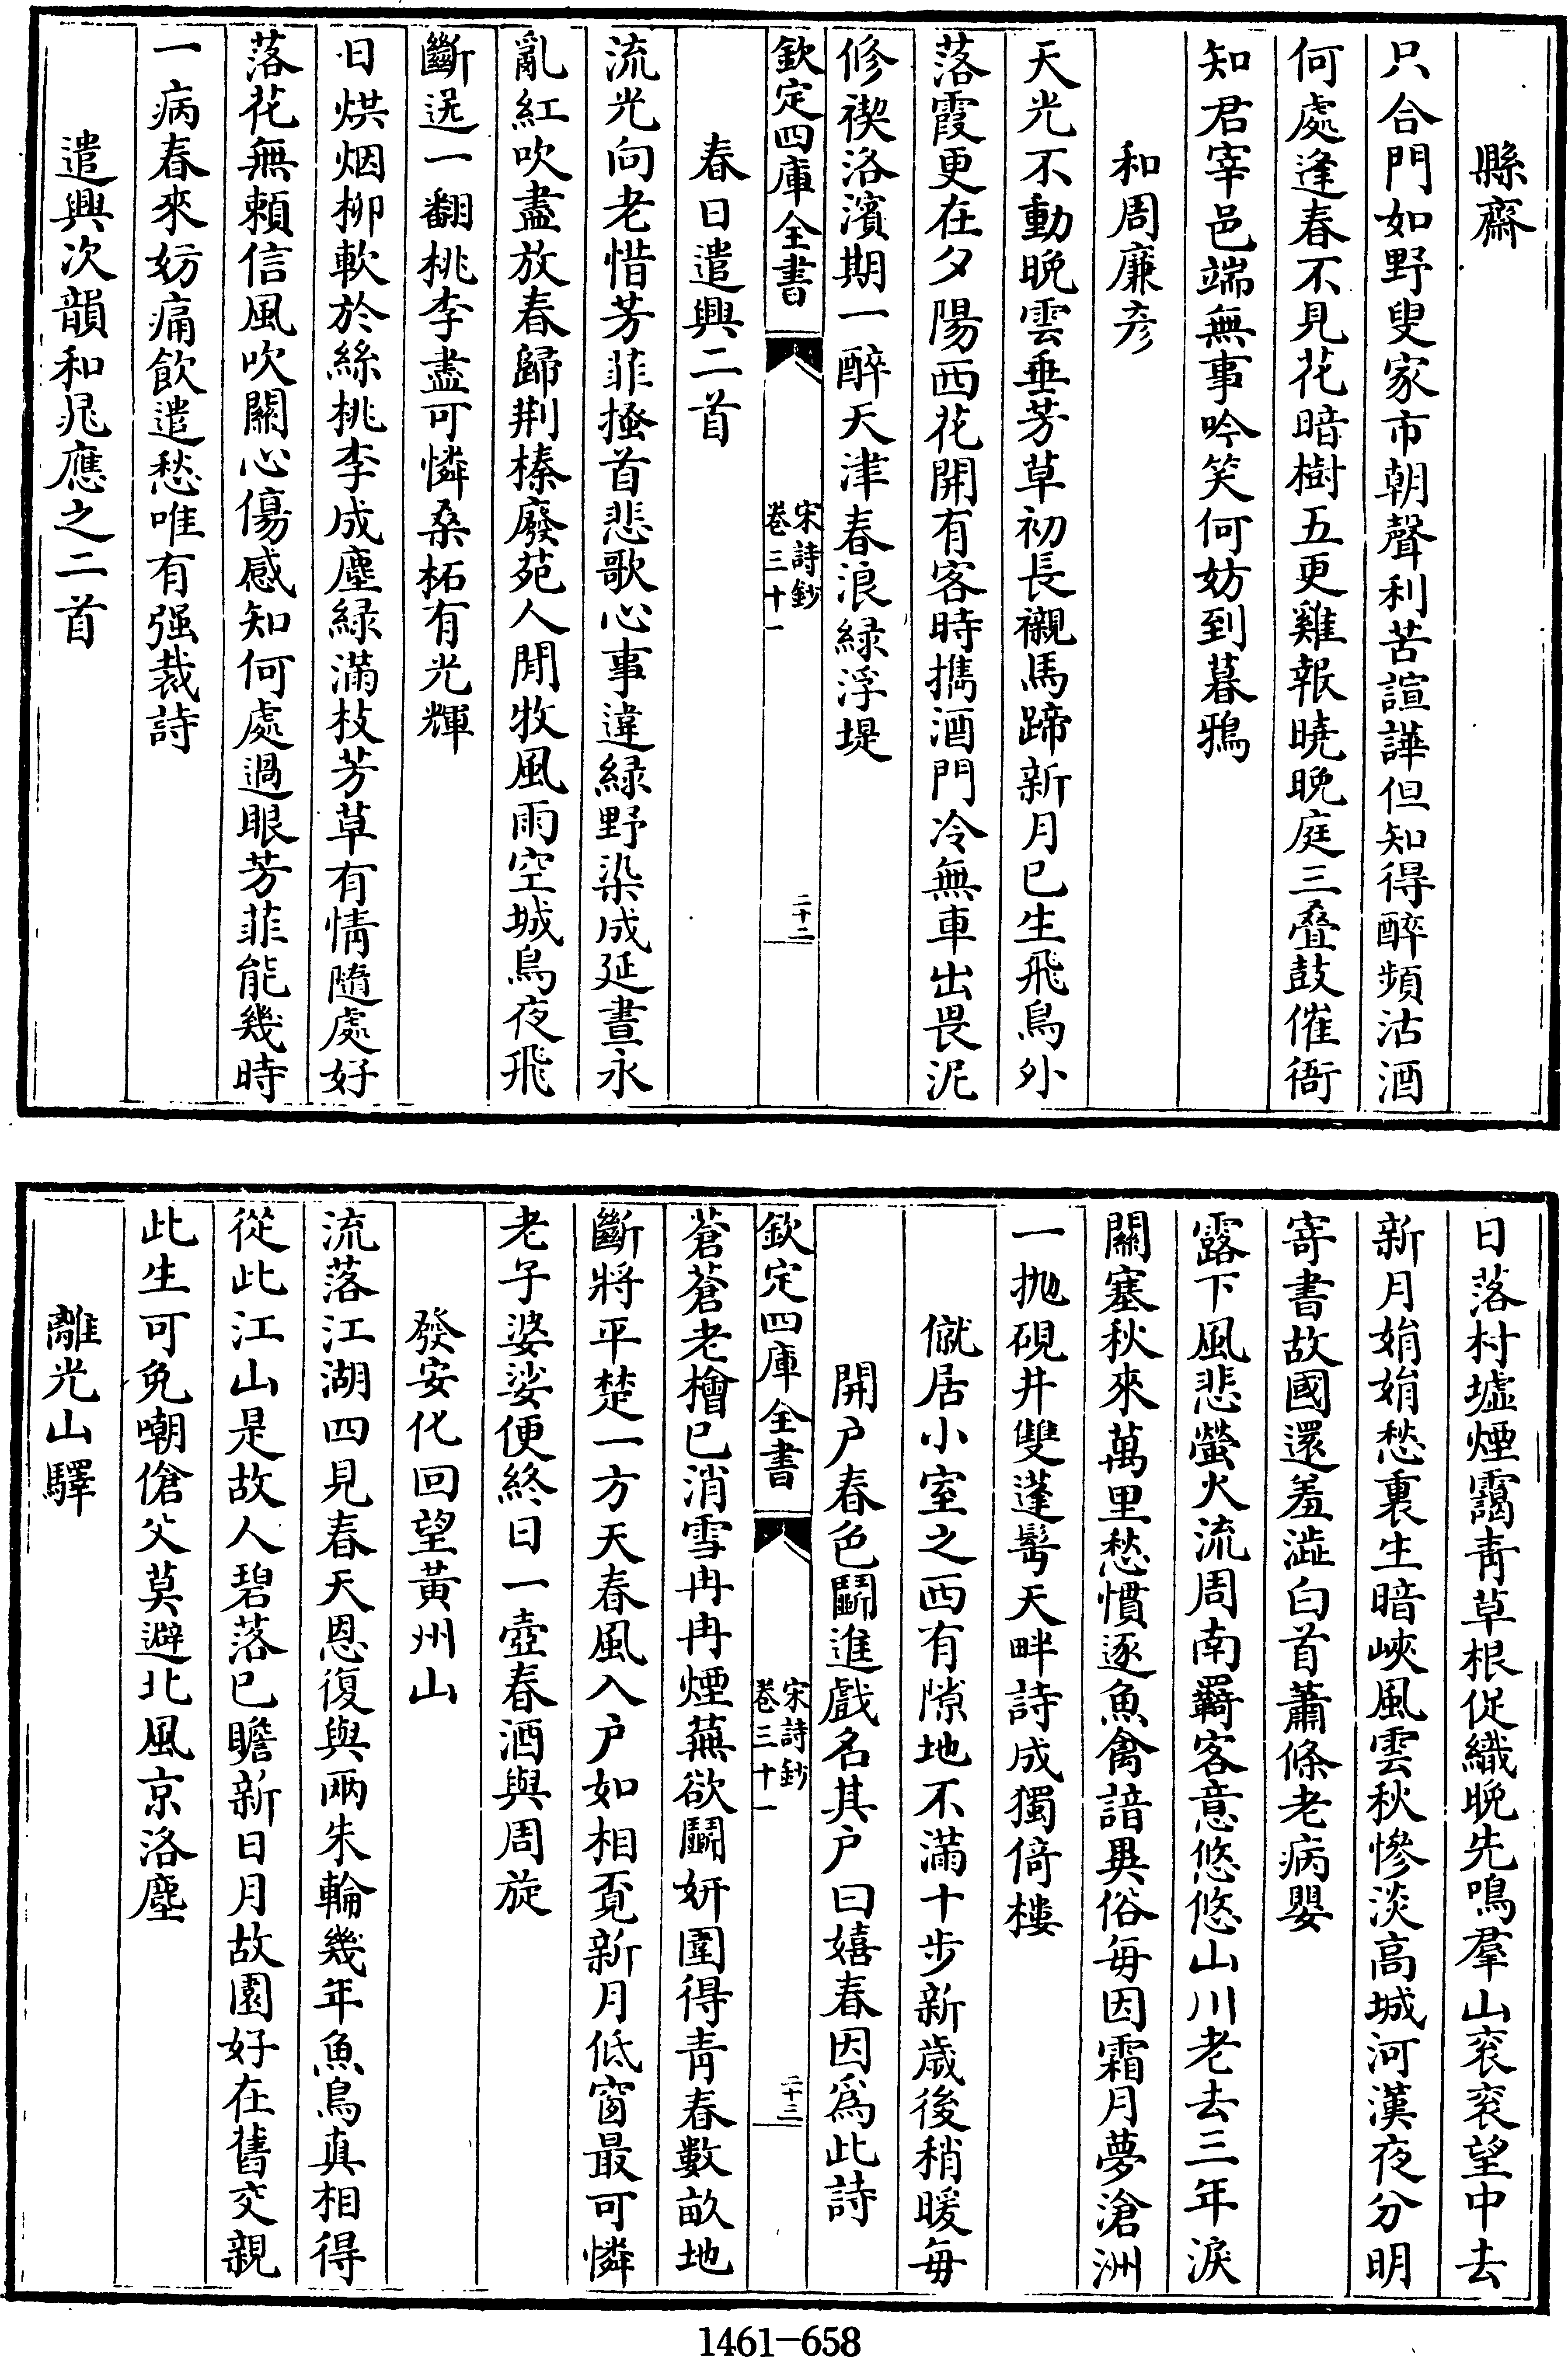 縣齋
只合門如野叟家市朝聲利苦諠譁但知得醉頻沽酒
何處逢春不見花暗樹五更雞報曉晚庭三叠鼓催衙
知君宰邑端無事吟笑何妨到暮鴉
和周廉彦
天光不動晚雲垂芳草初長襯馬蹄新月已生飛鳥外
落霞更在夕陽西花開有客時攜酒門冷無車出畏泥
修禊洛濱期一醉天津春浪緑浮堤
欽定四庫全書
宋詩鈔
卷三十一
二十二
春日遣興二首
流光向老惜芳菲搔首悲歌心事違緑野染成延晝永
亂紅吹盡放春歸荆榛廢苑人閒牧風雨空城鳥夜飛
斷送一翻桃李盡可憐桑柘有光輝
日烘烟柳軟於絲桃李成塵緑滿枝芳草有情隨處好
落花無頼信風吹關心傷感知何處過眼芳菲能幾時
一病春來妨痛飲遣愁唯有强裁詩
遣興次韻和晁應之二首
日落村墟煙靄青草根促織晚先鳴羣山衮衮望中去
新月娟娟愁裏生暗峽風雲秋慘淡高城河漢夜分明
寄書故國還羞澁白首蕭條老病嬰
露下風悲螢火流周南羇客意悠悠山川老去三年淚
關塞秋來萬里愁慣逐魚禽諳異俗每因霜月夢滄洲
一抛硯井雙蓬鬢天畔詩成獨倚樓
僦居小室之西有隙地不滿十步新歲後稍暖每
開户春色鬭進戲名其户曰嬉春因爲此詩
欽定四庫全書
宋詩鈔
卷三十一
二十三
蒼蒼老檜已消雪冉冉煙蕪欲鬭妍圍得青春數畝地
斷將平楚一方天春風入户如相覓新月低窗最可憐
老子婆娑便終日一壺春酒與周旋
發安化回望黄州山
流落江湖四見春天恩復與兩朱輪幾年魚鳥真相得
從此江山是故人碧落已瞻新日月故園好在舊交親
此生可免嘲傖父莫避北風京洛塵
離光山驛
1461-658